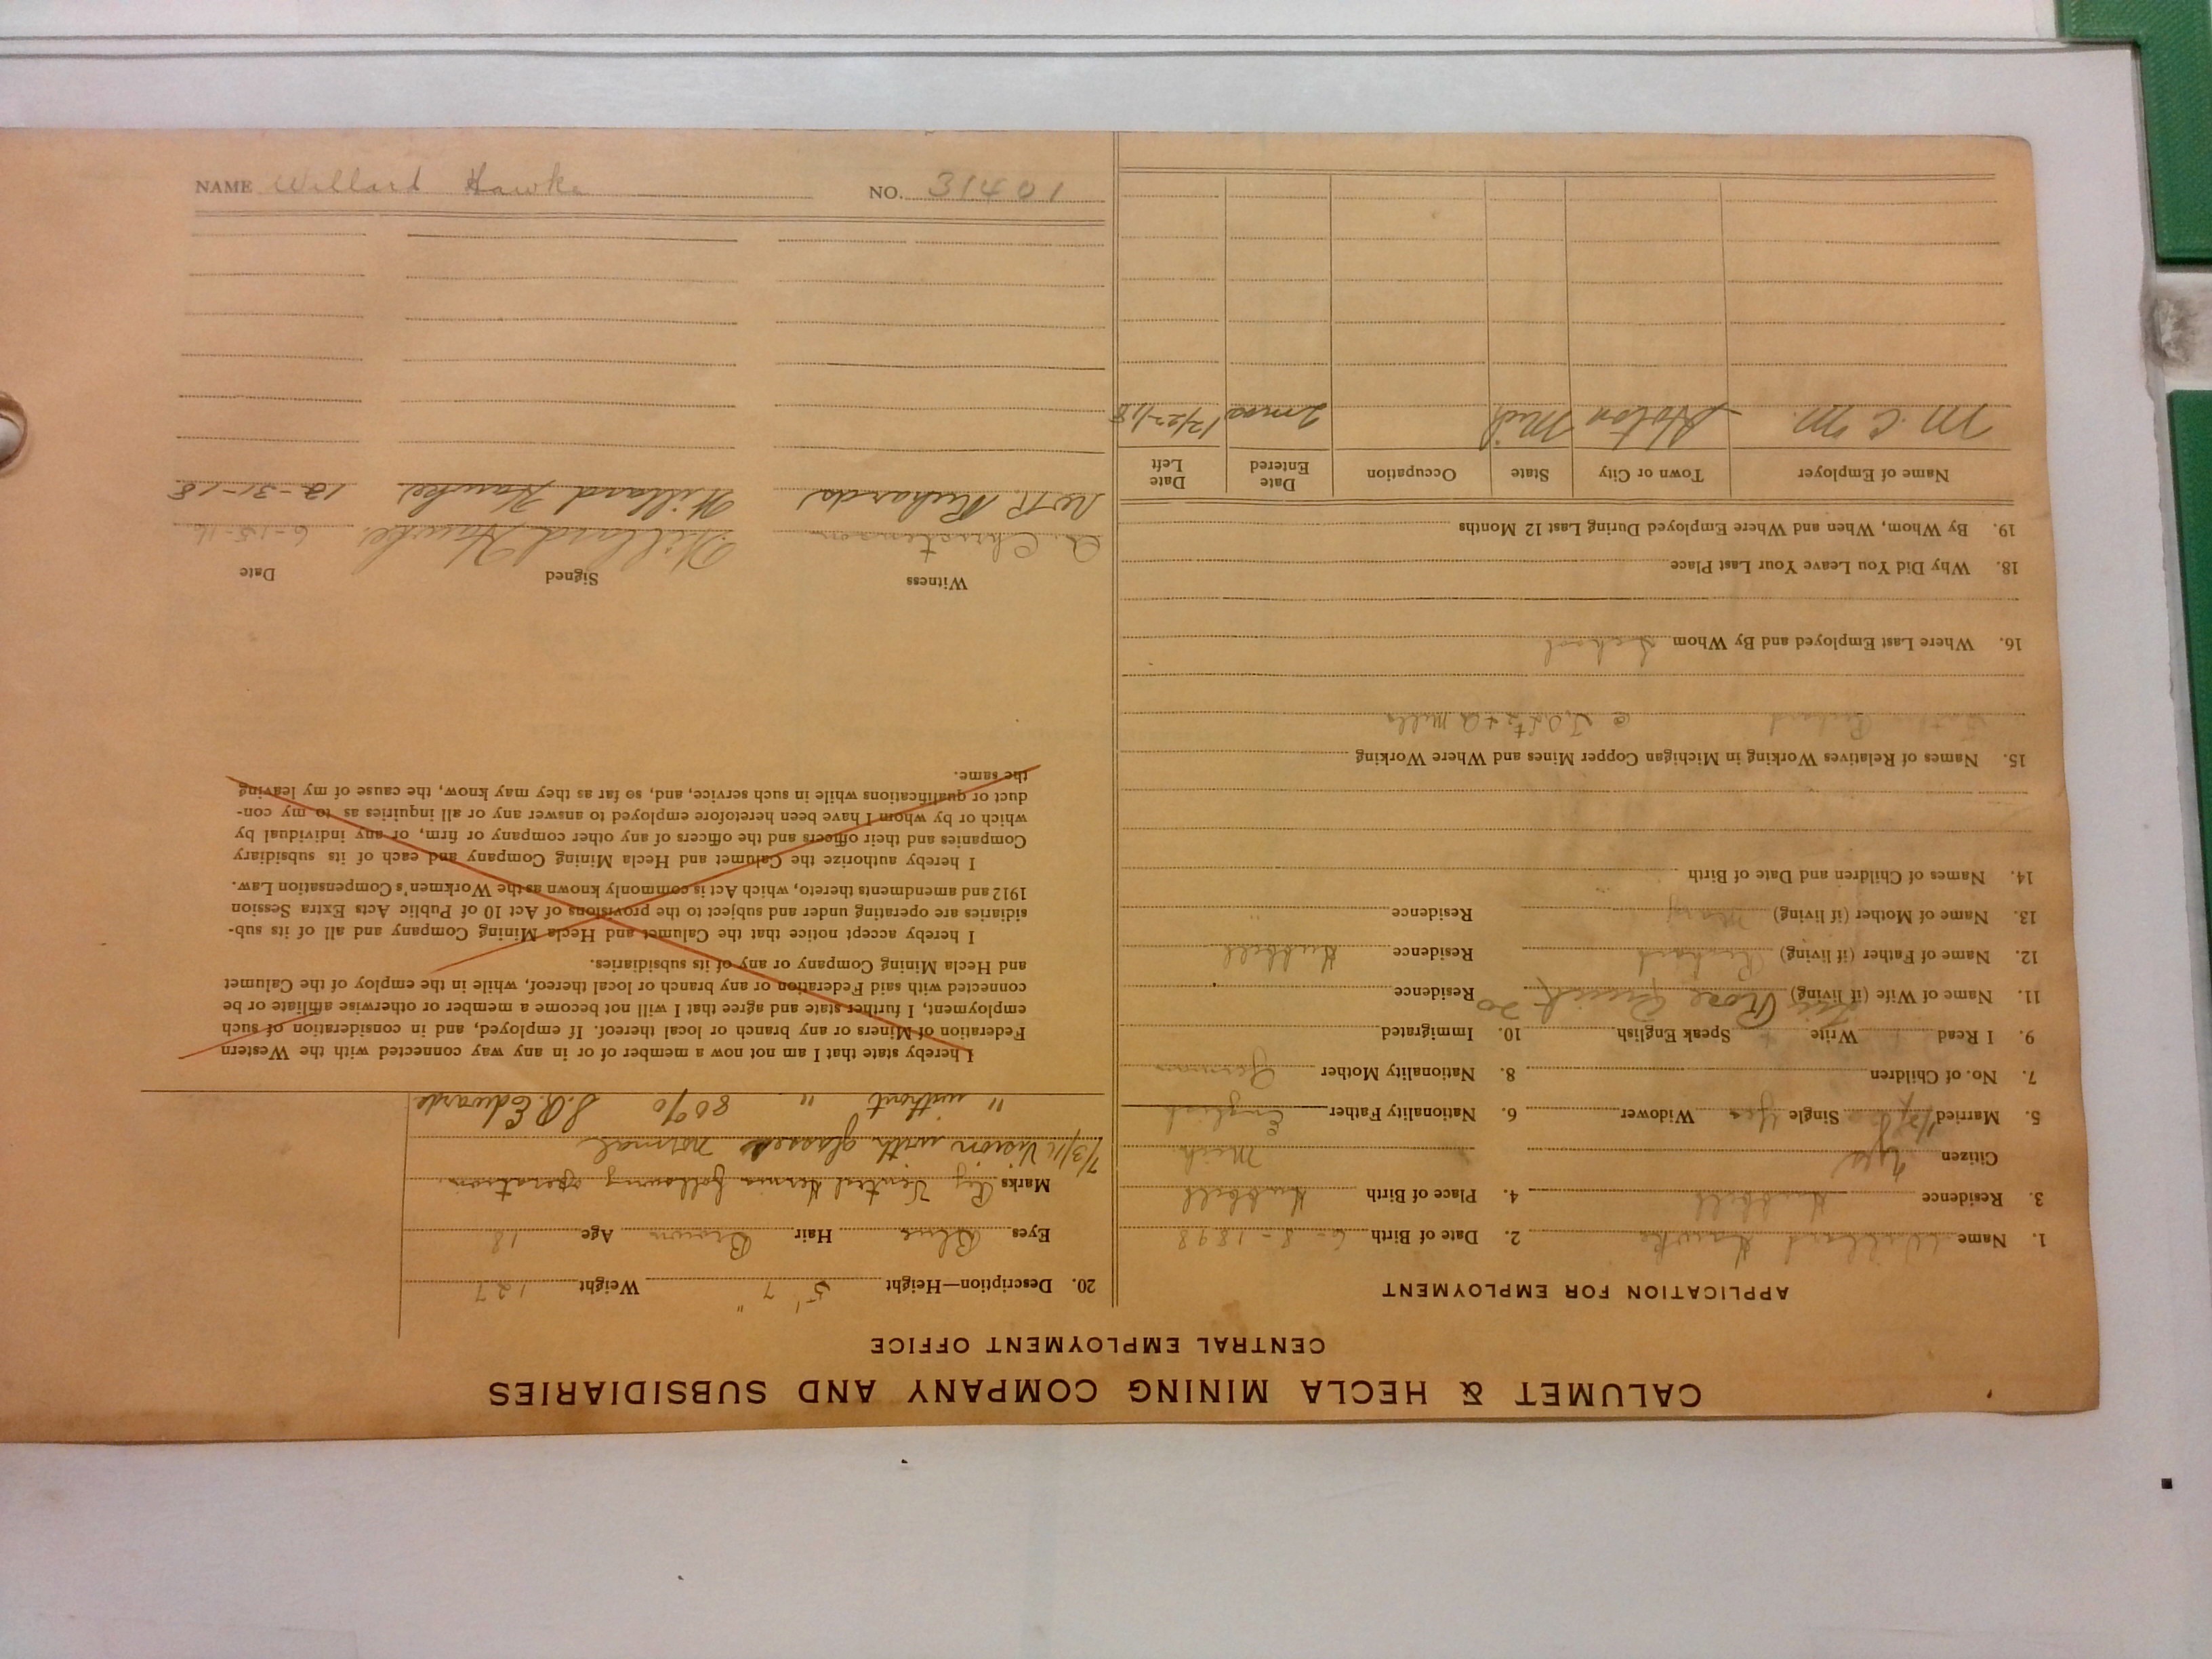 CALUMET & HECLA MINING COMPANY AND SUBSIDIARIES
CENTRAL EMPLOYMENT OFFICE
APPLICATION FOR EMPLOYMENT
1. Name Willard Hawke 2. Date of Birth 6-8-1898
3. Residence Hubbell 4. Place of Birth Hubbell
Citizen Yes Mich
5. Married Single Yes Widower 6. Nationality Father English
7. No. of Children 8. Nationality Mother German
9. I Read Write Speak English 10. Immigrated
11. Name of Wife (if living) Rose Residence
12. Name of Father (if living) Richard Residence Hubbell
13. Name of Mother (if living) Mary Residence "
14. Names of Children and Date of Birth
15. Names of Relatives Working in Michigan Copper Mines and Where Working
Father Richard @ Mills
16. Where Last Employed and By Whom School
18. Why Did You Leave Your Last Place
19. By Whom, When and Where Employed During Last 12 Months
Name of Employer Town or City State Occupation Date Entered Date Left
M. C. M. Mich 2 mos 12/22/18
20. Description—Height 5' 7" Weight 127
Eyes Blue Hair Brown Age 18
Marks Ventral Hernia following operation
7/3/16 Vision with glasses normal
" without " 80% Edwards
I hereby state that I am not now a member of or in any way connected with the Western
Federation of Miners or any branch or local thereof. If employed, and in consideration of such
employment, I further state and agree that I will not become a member or otherwise affiliate or be
connected with said Federation or any branch or local thereof, while in the employ of the Calumet
and Hecla Mining Company or any of its subsidiaries.
I hereby accept notice that the Calumet and Hecla Mining Company and all of its sub-
sidiaries are operating under and subject to the provisions of Act 10 of Public Acts Extra Session
1912 and amendments thereto, which Act is commonly known as the Workmen's Compensation Law.
I hereby authorize the Calumet and Hecla Mining Company and each of its subsidiary
Companies and their officers and the officers of any other company or firm, or any individual by
which or by whom I have been heretofore employed to answer any or all inquiries as to my con-
duct or qualifications while in such service, and, so far as they may know, the cause of my leaving
the same.
Witness Signed Date
A. Christensen Willard Hawke 6-15-16
W.R. Richards Willard Hawke 12-31-18
NAME Willard Hawke NO. 31401